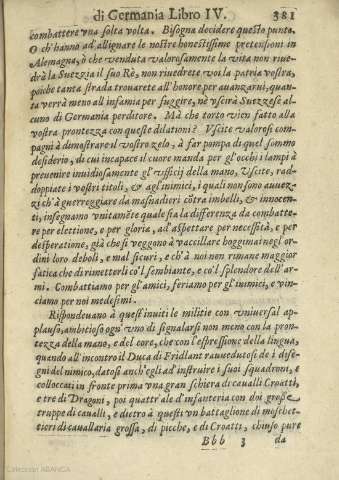 di Germania Libro IV. 381
combattere vna solta volta. Bisogna decidere questo punto.
O ch'hanno ad'allignare le nostre honestissime pretensioni in
Alemagna, ò che venduta valorosamente la vita non riue-
drà la Suezzia il suo Rè, non riuedrete voi la patria vostra,
poiche tanta strada trouarete all'honore per auanzarui, quan-
ta verrà meno all'infamia per fuggire, nè vscirà Suezzese al-
cuno di Germania perditore. Mà che torto vien fatto alla
vostra prontezza con queste dilationi? Vscite valorosi com-
pagni à dimostrare il vostro zelo, à far pompa di quel sommo
desiderio, di cui incapace il cuore manda per gl'occhi i lampi à
preuenire inuidiosamente gl'vfficij della mano, Vscite, rad-
doppiate i vostri titoli, & agl'inimici, i quali non sono auuez-
zi ch'à guerreggiare da masnadieri cõtra imbelli, & innocen-
ti, insegnamo vnitamẽte quale sia la differenza da combatte-
re per elettione, e per gloria, ad'aspettare per necessità, e per
desperatione, già che si veggono à vaccillare hoggimai negl'or-
dini loro deboli, e mal sicuri, e ch'à noi non rimane maggior
fatica che di rimetterli co'l sembiante, e co'l splendore dell'ar-
mi. Combattiamo per gl'amici, feriamo per gl'inimici, e vin-
ciamo per noi medesimi.
Rispondeuano à quest'inuiti le militie con vniuersal ap-
plauso, ambitioso ogn'vno di signalarsi non meno con la pron-
tezza della mano, e del core, che con l'espressione della lingua,
quando all'incontro il Duca di Fridlant rauuedutosi de i dise-
gni del nimico, datosi anch'egli ad'instruire i suoi squadroni, e
colloccati in fronte prima vna gran schiera di caualli Croatti,
e tre di Dragoni, poi quattr'ale d'infanteria con doi grosse
truppe di caualli, e dietro à questi vn battaglione di moschet-
tieri di cauallaria grossa, di picche, e di Croatti, chiuso pure
Bbb 3 da
Colección ABANCA